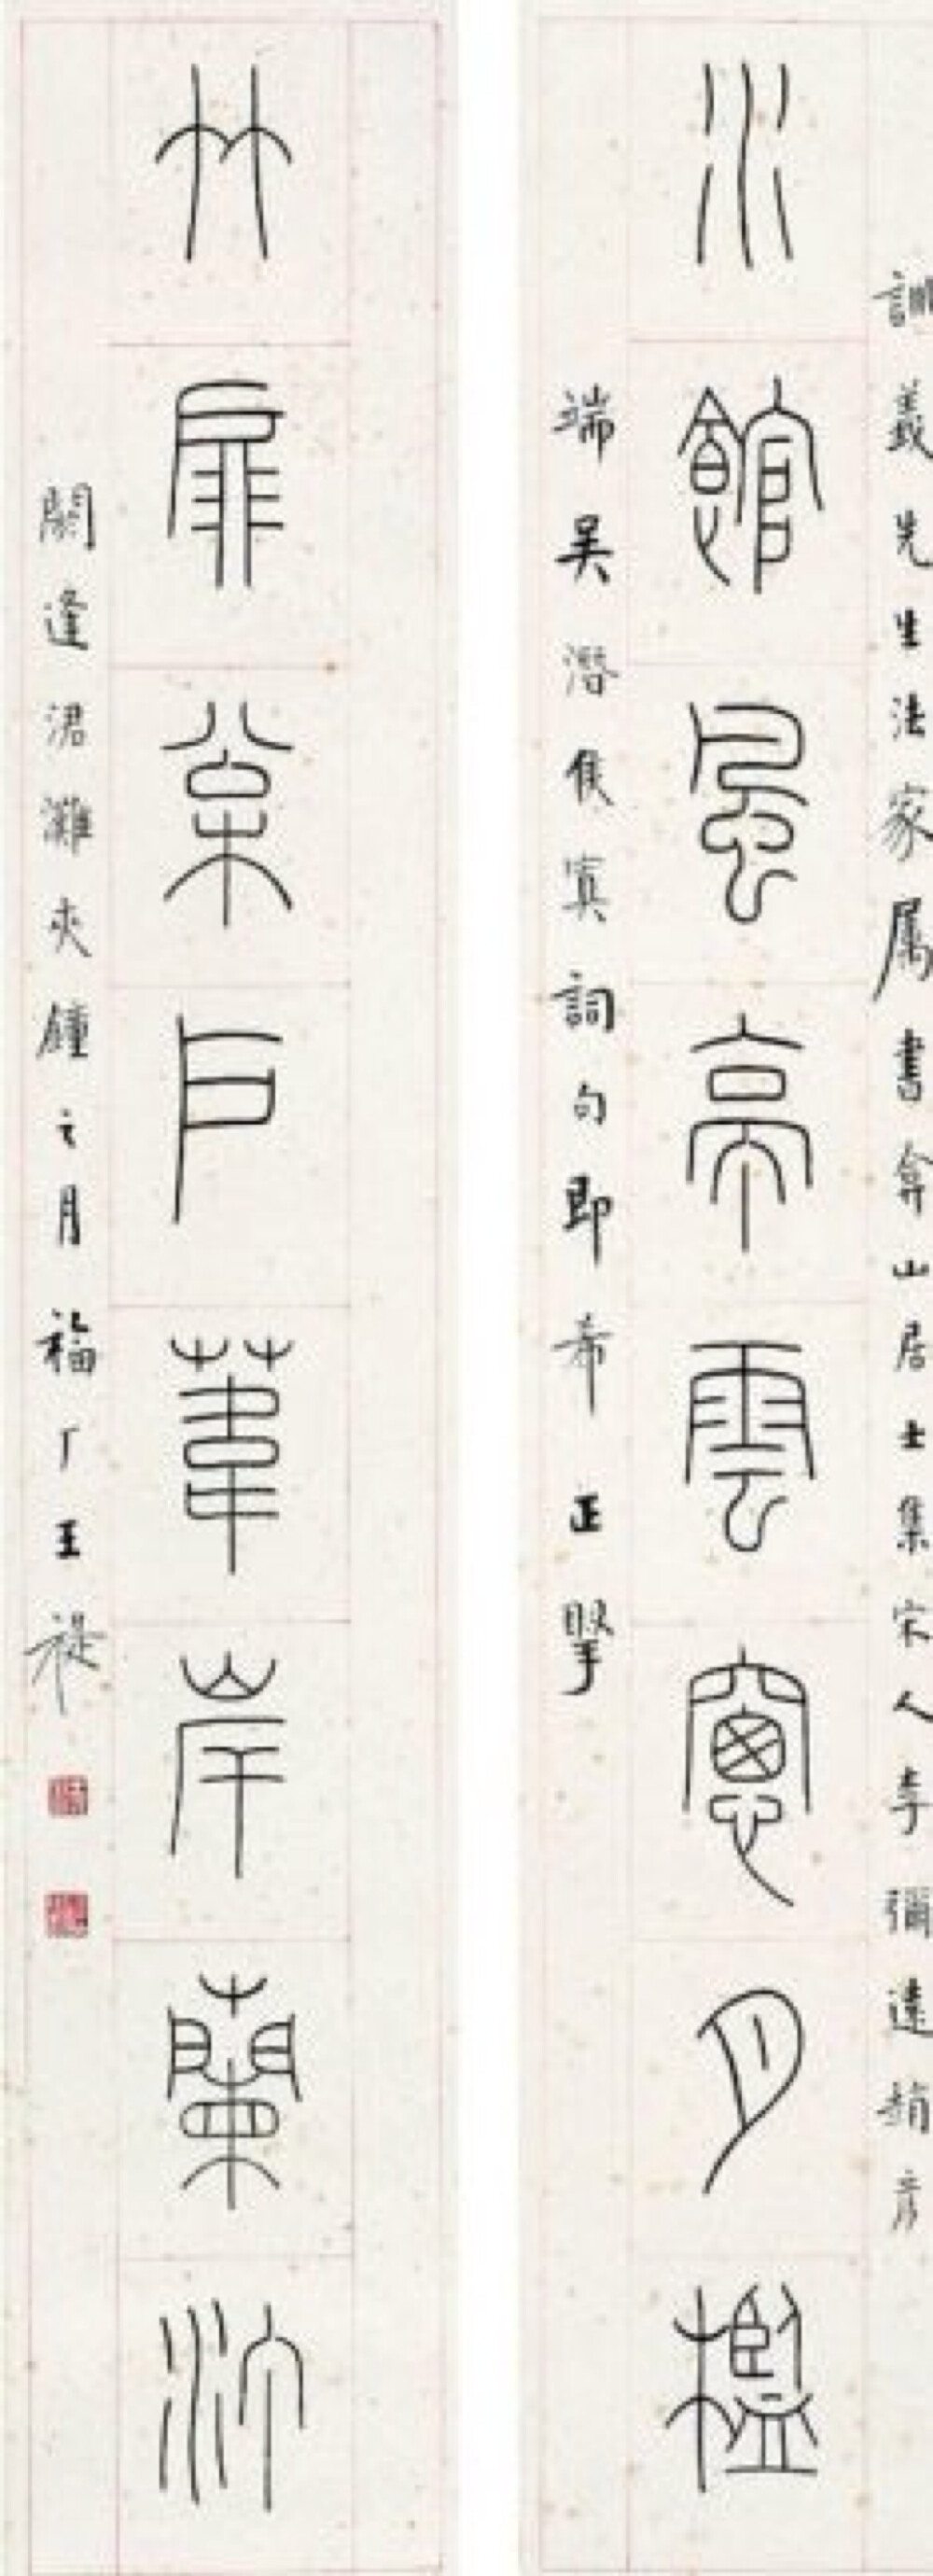 訓義先生法家属書弇山居士集宋人李彌趙彦
水館風亭雲窻月檻
端吴潛侯寘詞句即希正掔
竹扉枀戶葦岸蘭汀
閼逢涒灘夾鐘之月福厂王禔